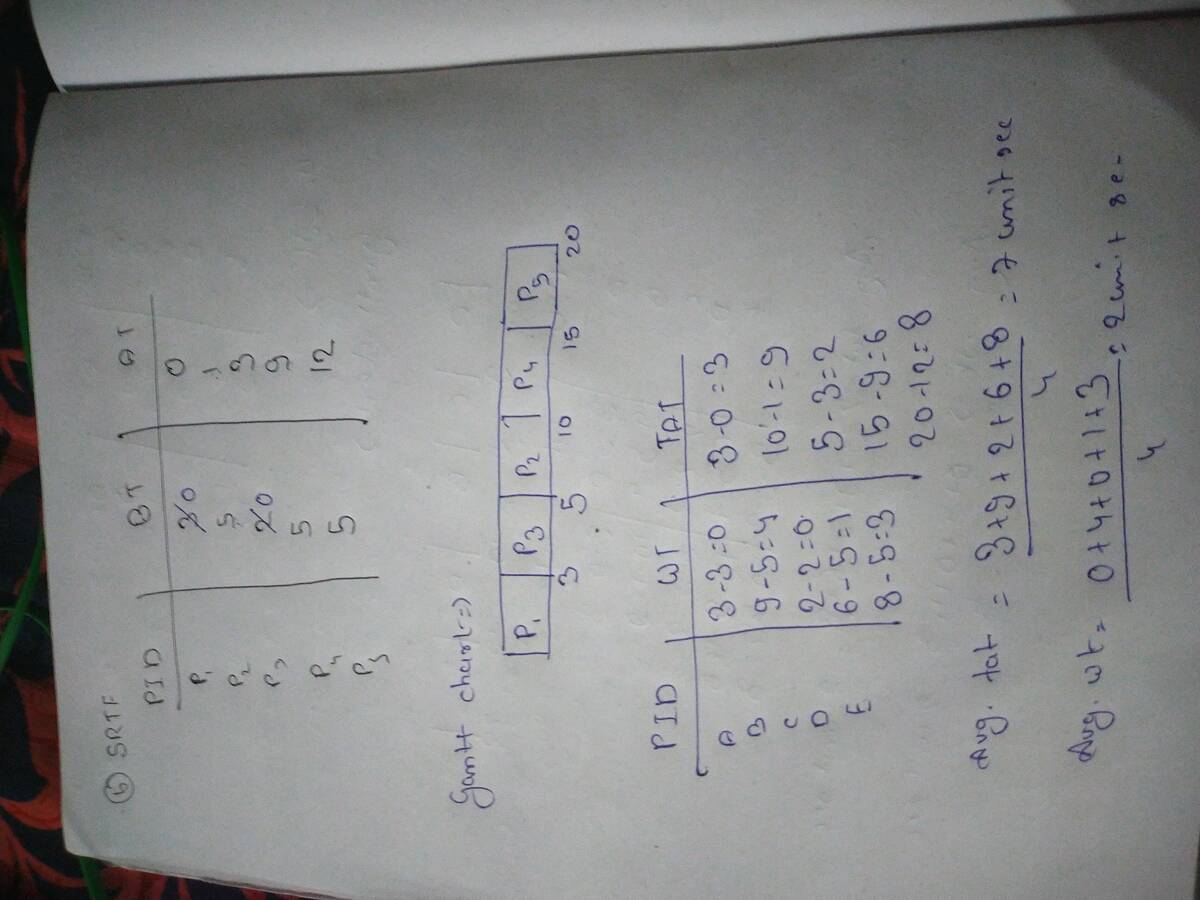 ⑥ SRTF
PID BT AT
P1 3̶0 0
P2 5 1
P3 2̶0 3
P4 5 9
P5 5 12
Gantt chart=>
P1 P3 P2 P4 P5
3 5 10 15 20
PID WT TAT
A 3-3=0 3-0=3
B 9-5=4 10-1=9
C 2-2=0 5-3=2
D 6-5=1 15-9=6
E 8-5=3 20-12=8
Avg. tat = 3+9+2+6+8 = 7 unit sec
4
Avg. wt= 0+4+0+1+3 = 2 unit se-
4